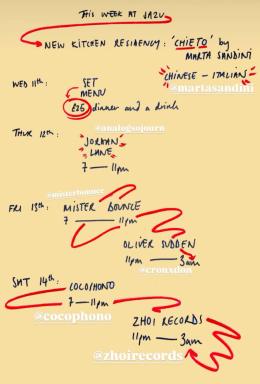 THIS WEEK AT JAZU
NEW KITCHEN RESIDENCY: 'CHIETO' by
MARTA SANDINI
CHINESE - ITALIAN
@martasandini
WED 11th: SET
MENU
£25 dinner and a drink
@analogsojourn
THUR 12th: JORDAN
LANE
7 — 11pm
@misterbounce
FRI 13th: MISTER BOUNCE
7 — 11pm
OLIVER SUDDEN
@cronxdon
11pm — 3am
SAT 14th: COCOPHONO
7 — 11pm
@cocophono
ZHOI RECORDS
11pm — 3am
@zhoirecords